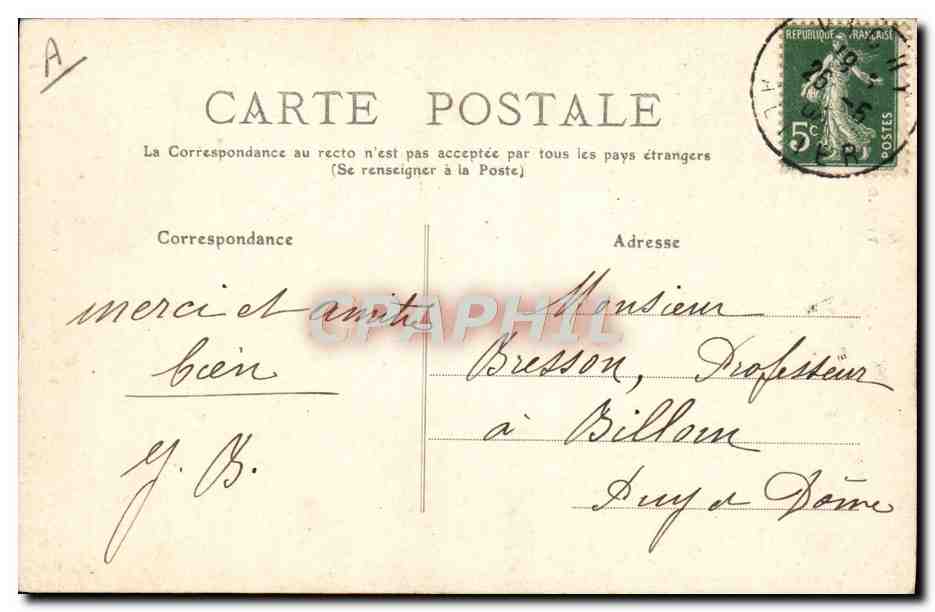 A
CARTE POSTALE
La Correspondance au recto n'est pas acceptée par tous les pays étrangers
(Se renseigner à la Poste)
RÉPUBLIQUE FRANÇAISE
5c
POSTES
Correspondance
merci et amitié
bien
Y. B.
Adresse
Monsieur
Bresson, Professeur
à Billom
Puy de Dôme
CPAPHIL